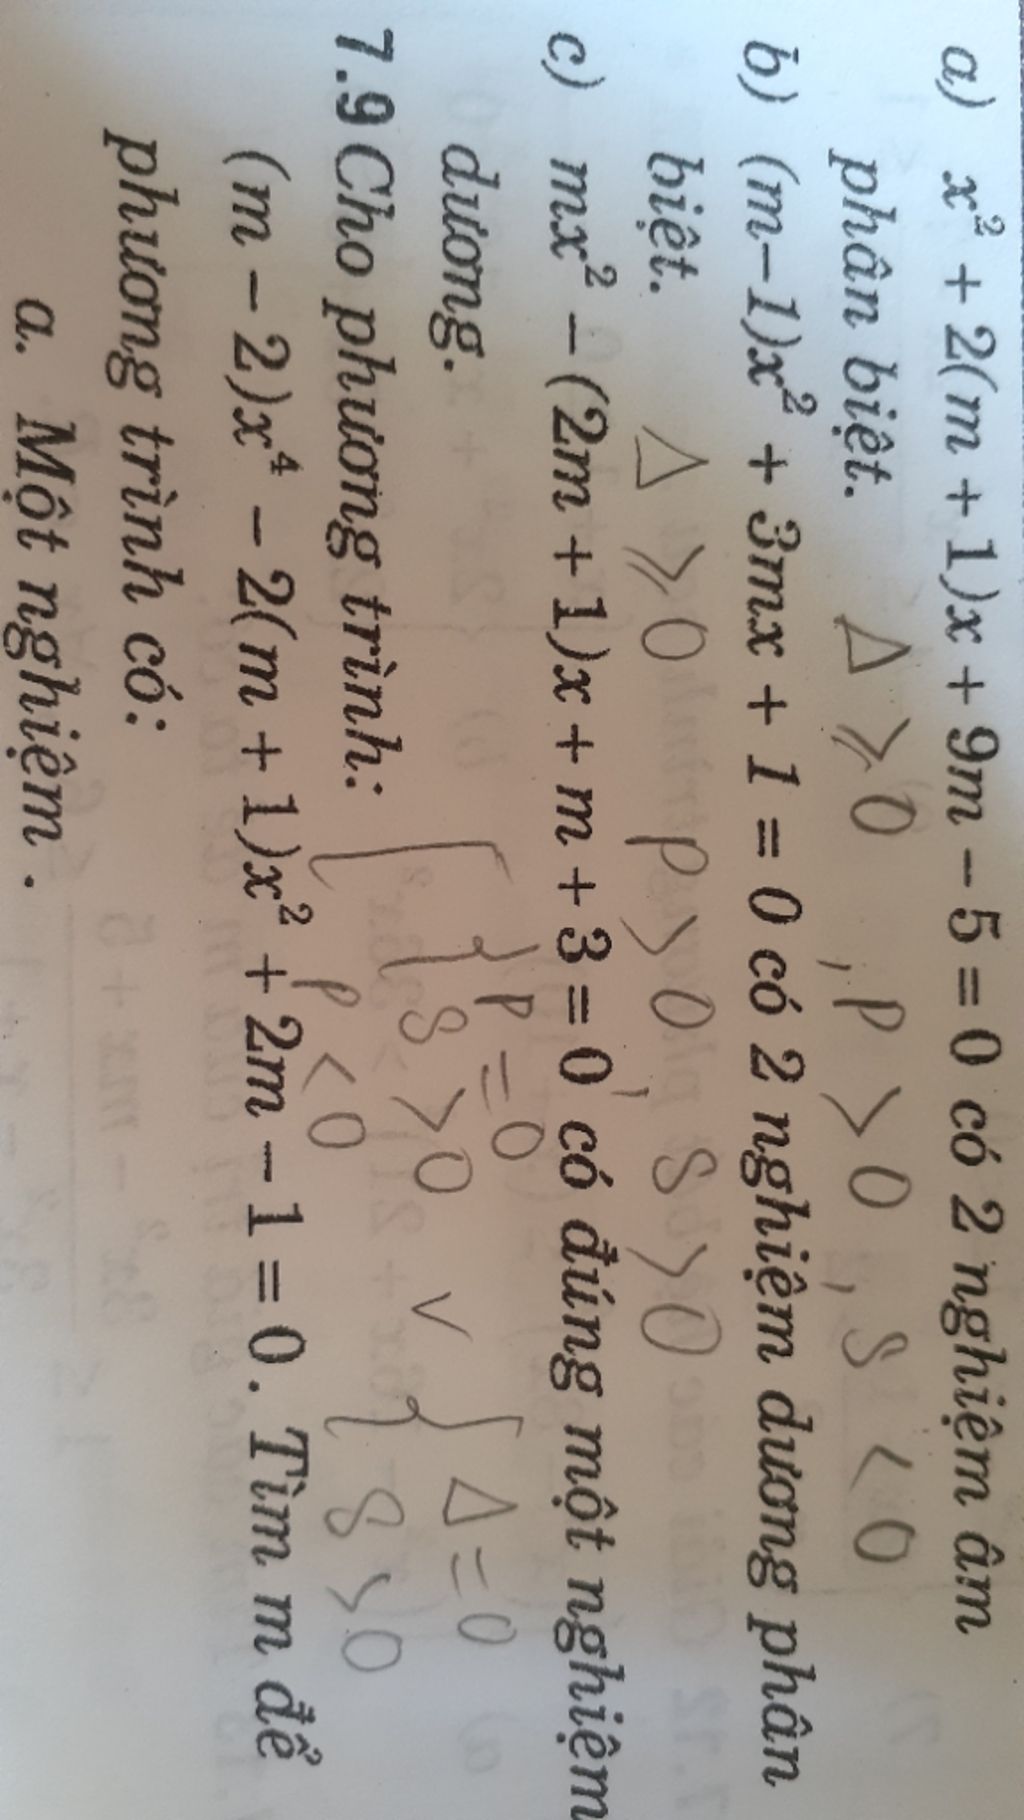 a) x² + 2(m + 1)x + 9m − 5 = 0 có 2 nghiệm âm
phân biệt. Δ ⩾ 0 , P > 0 , S < 0
b) (m−1)x² + 3mx + 1 = 0 có 2 nghiệm dương phân
biệt. Δ ⩾ 0 P > 0 , S > 0
c) mx² − (2m + 1)x + m + 3 = 0 có đúng một nghiệm
dương. { P = 0 Δ = 0
S > 0 v { S > 0
7.9 Cho phương trình: [ P < 0
(m − 2)x⁴ − 2(m + 1)x² + 2m − 1 = 0. Tìm m để
phương trình có:
a. Một nghiệm .